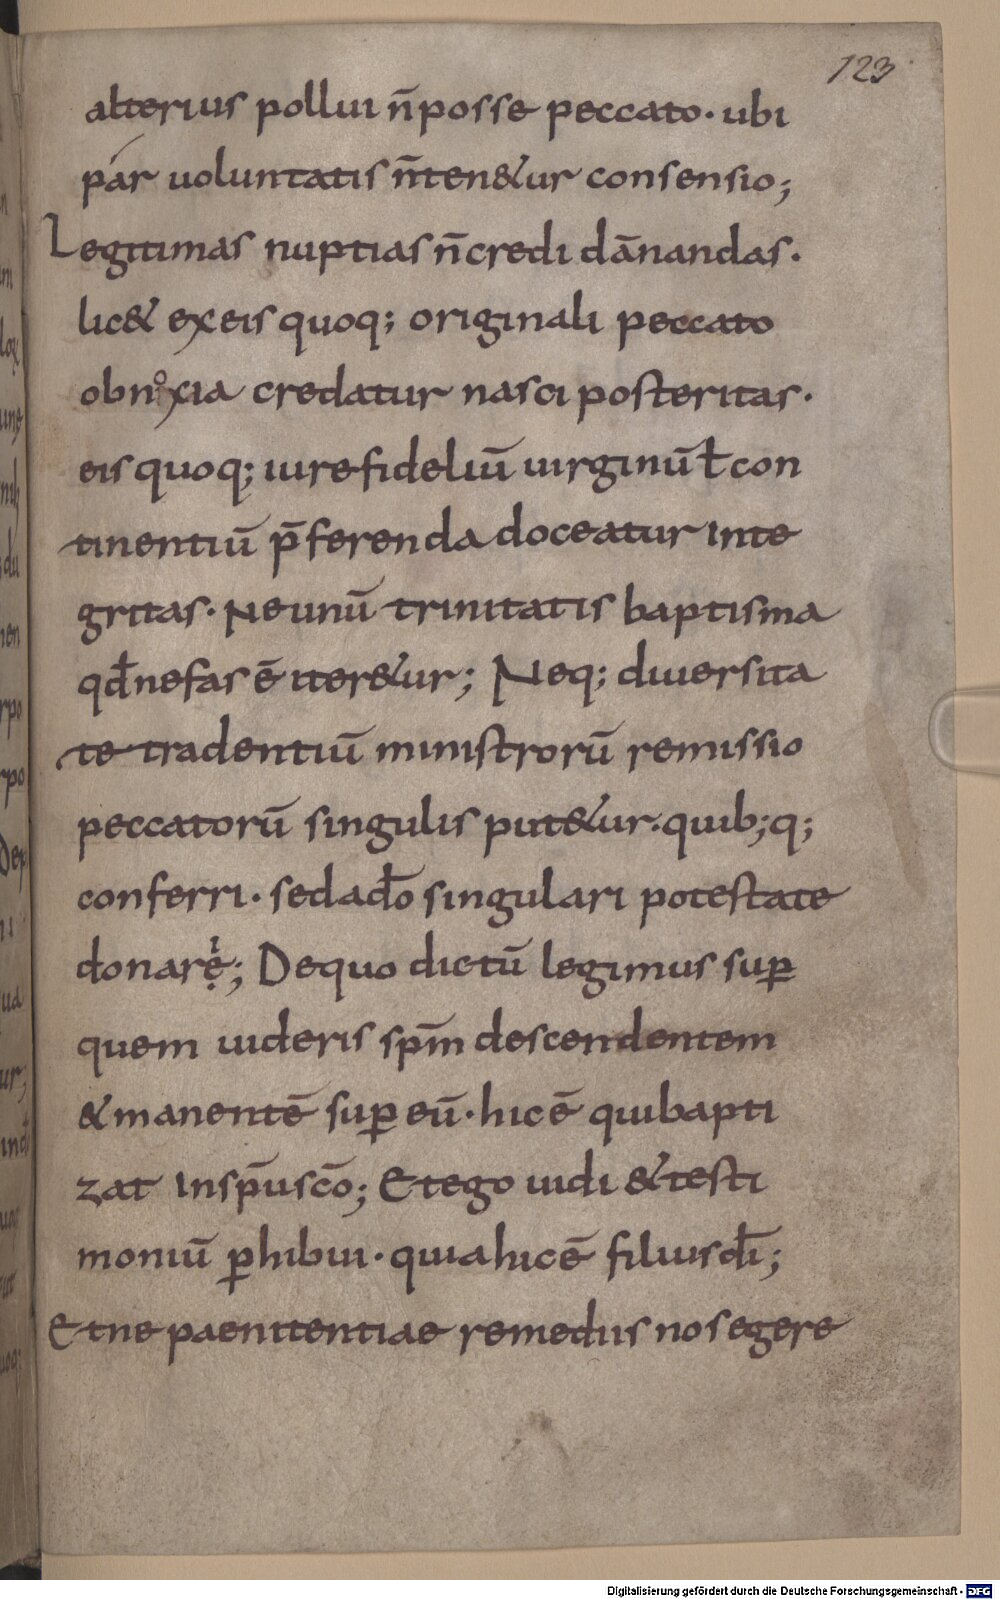 123
alterius pollui n̄ posse peccato· ubi
pár uoluntatis n̄ ten&ur consensio;
Legitimas nuptias n̄ credi dānandas·
lic& ex eis quoq; originali peccato
obnoxia credatur nasci posteritas·
eis quoq; iure fideliū uirginū ł con
tinentiū p̄ferenda doceatur inte
gritas· Ne unū trinitatis baptisma
qđ nefas ē iter&ur; Neq; diuersita
te tradentiū ministrorū remissio
peccatorū singulis put&ur· quib;q;
conferri· sed a dō singulari potestate
donarẹi; De quo dictū legimus suꝑ
quem uideris sp̄m descendentem
& manentē suꝑ eū· hic ē qui bapti
zat in sp̄u scō; Et ego uidi & testi
moniū ꝑhibui· quia hic ē filius dī;
Et ne paenitentiae remediis nos egere
Digitalisierung gefördert durch die Deutsche Forschungsgemeinschaft - DFG